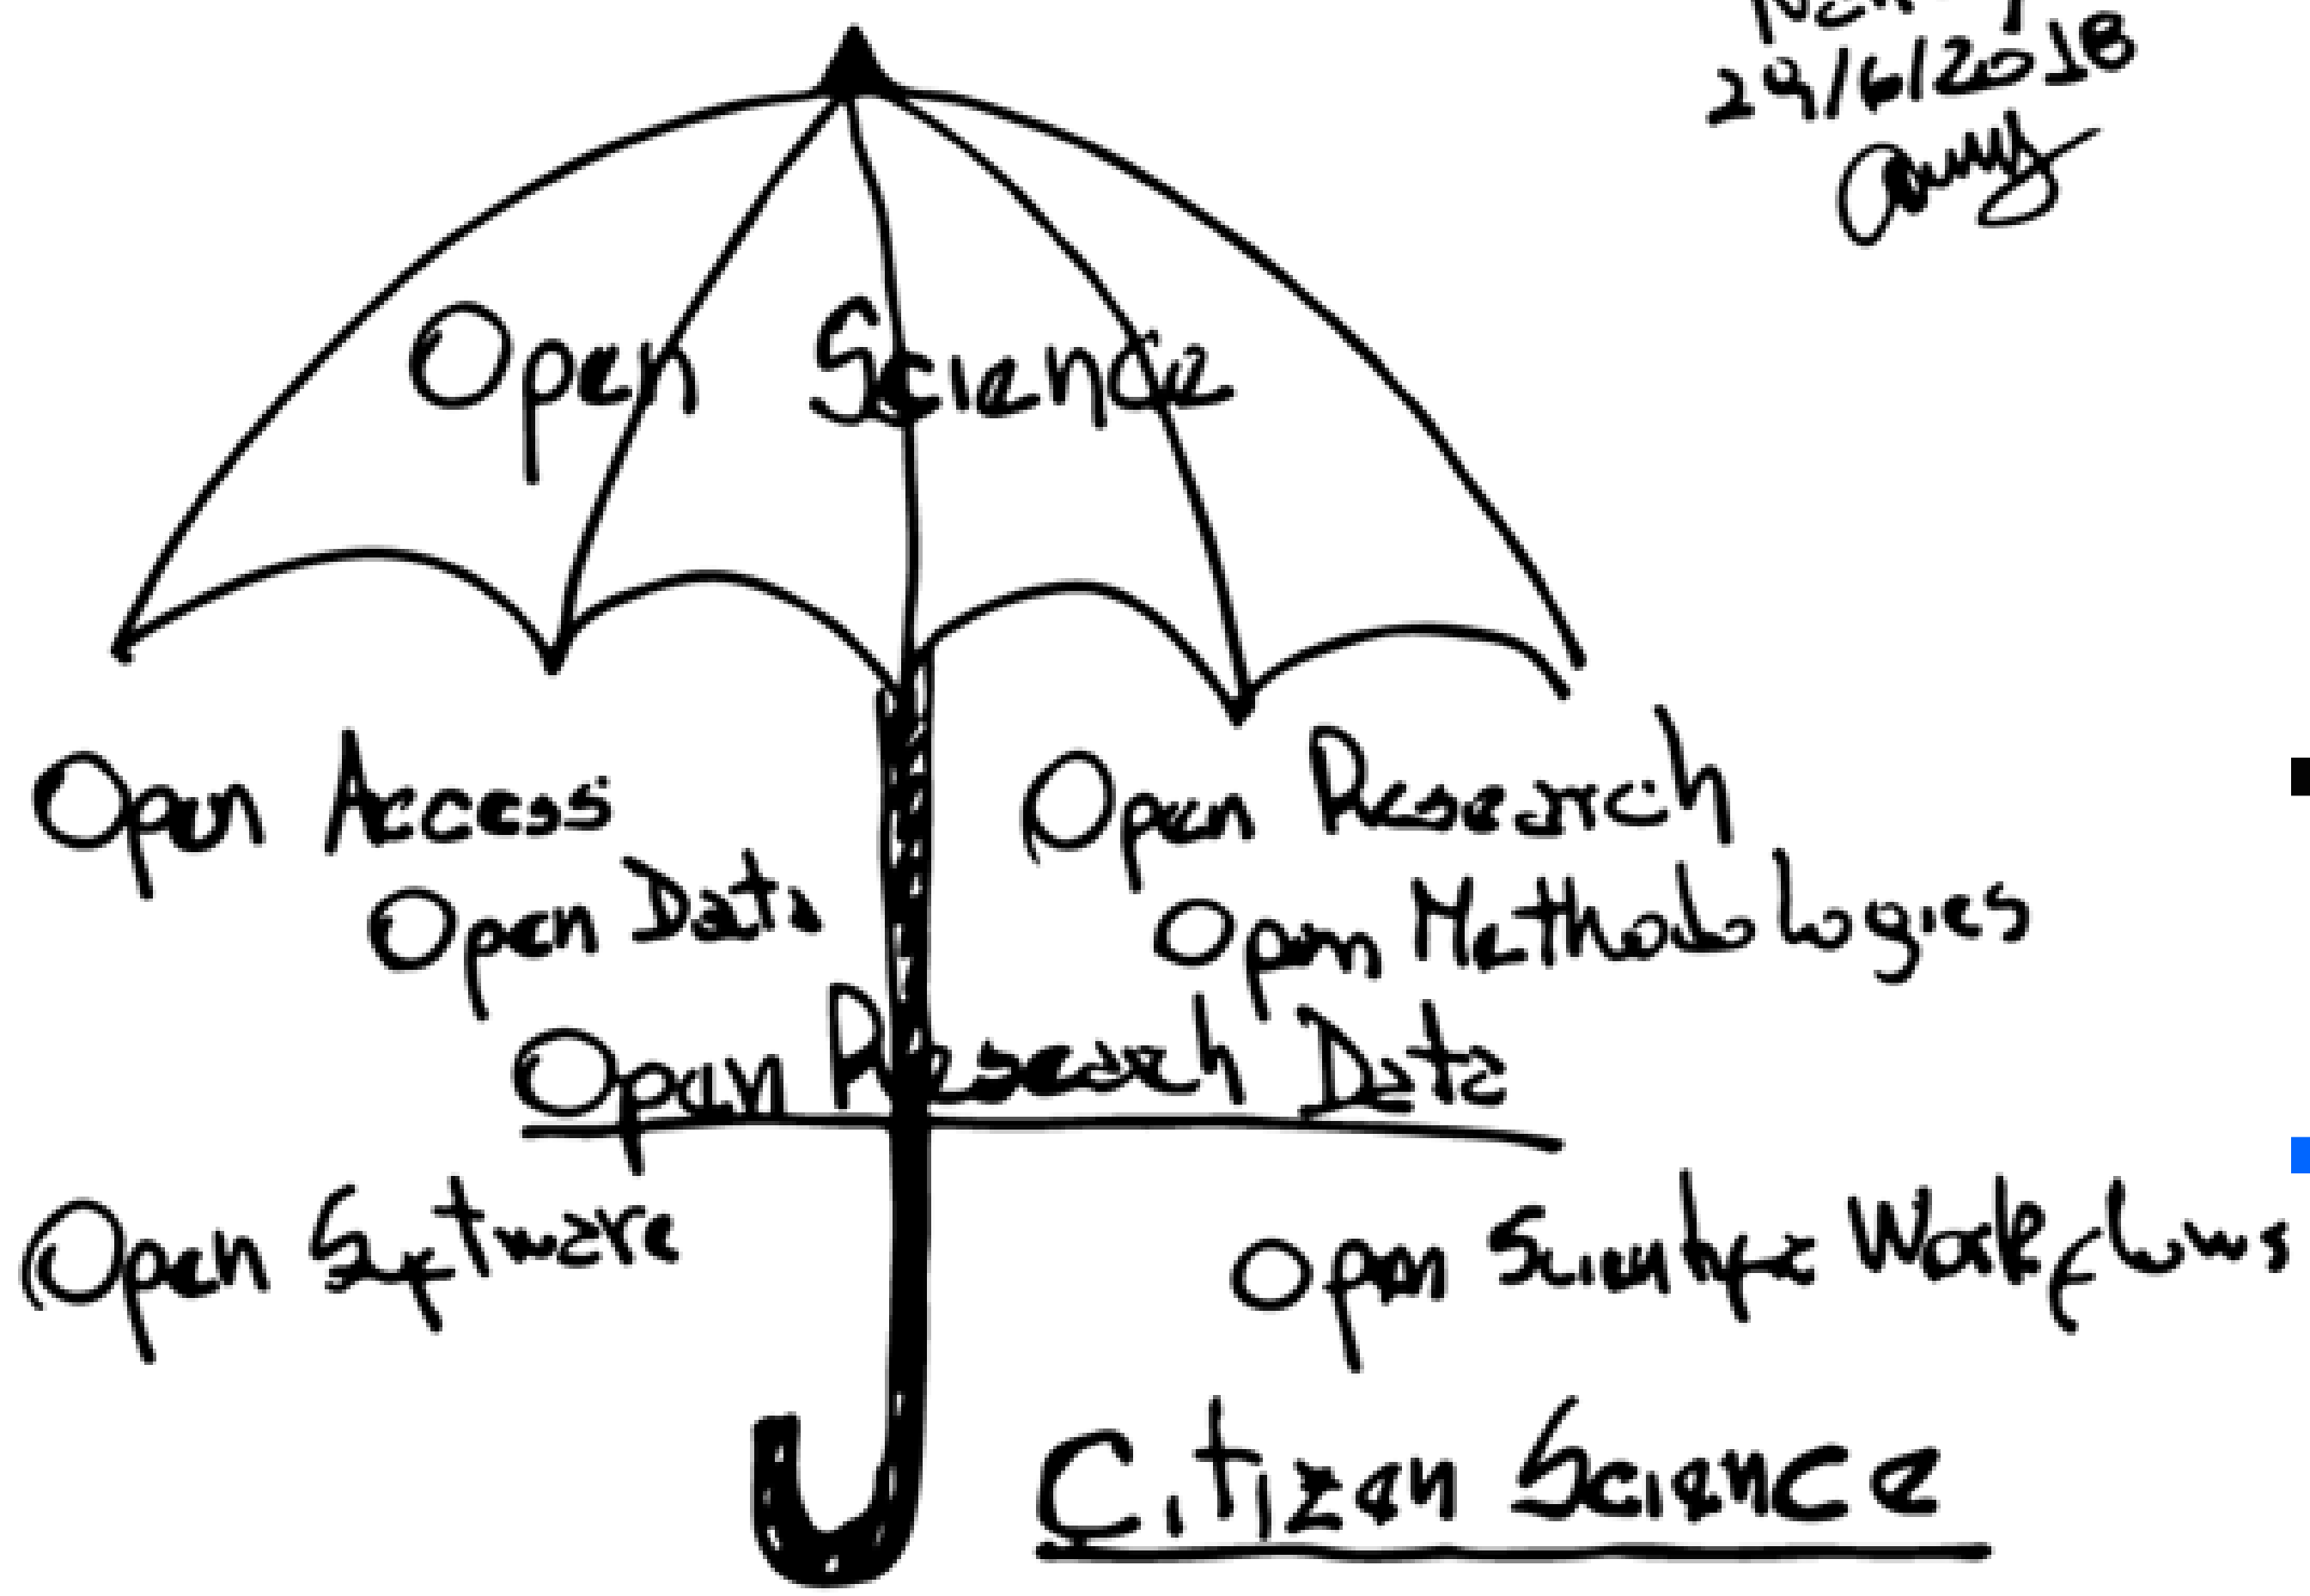 29/6/2018
Open Science
Open Access
Open Research
Open Data
Open Methodologies
Open Research Data
Open Software
Open Scientific Workflows
Citizen Science